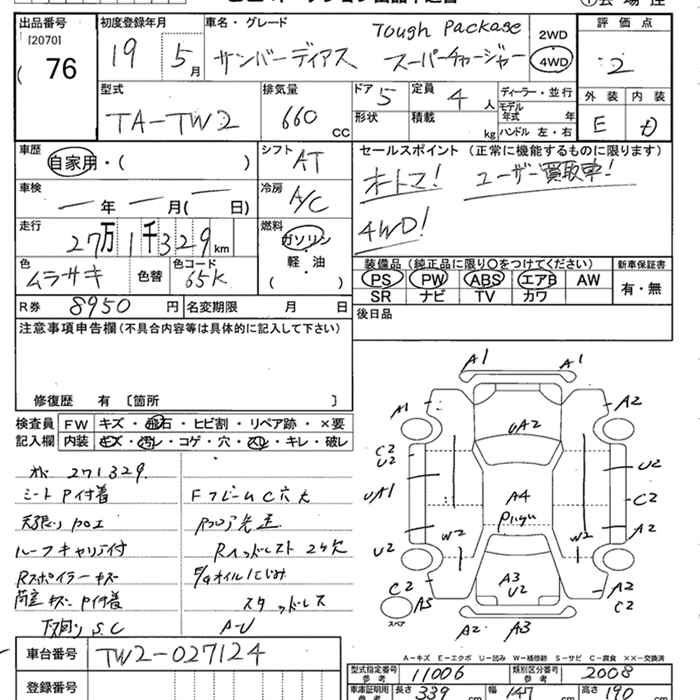 出品番号 初度登録年月 車名・グレード Tough Package 2WD 評価点
[2070]
76 19 5月 サンバーディアス スーパーチャージャー 4WD 2
型式 排気量 ドア 5 定員 4人 ディーラー・並行 外装 内装
TA-TW2 660 CC 形状 積載 kg モデル年式 年 E D
ハンドル 左・右
車歴 自家用・( ) シフト AT セールスポイント (正常に機能するものに限ります)
車検 ー年 ー月(ー日) 冷房 A/C オートマ! ユーザー買取車!
走行 27万1千329km 燃料 ガソリン・軽・油 ( ) 4WD!
色 ムラサキ 色替 色コード 65K 装備品(純正品に限り○をつけてください) 新車保証書
PS PW ABS エアB AW 有・無
SR ナビ TV カワ
R券 8950円 名変期限 月 日 後日品
注意事項申告欄(不具合内容等は具体的に記入して下さい)
修復歴 有 [箇所 ]
検査員 FW キズ・飛石・ヒビ割・リペア跡・×要
記入欄 内装 キズ・汚レ・コゲ・穴・スレ・キレ・破レ
271329
シートP付着 FフレームC穴大
天張り
ルーフキャリア付 Rヘッドレスト2ケ欠
Rスポイラーキズ E/gオイルにじみ
荷室キズP付着 スタッドレス
下廻りS.C A-U
A1 A1
A1 A2
UA2
C2 U2 U2
UA1 A4 C2
A2
W2 W2
U2
A3 U2
C2 A2
A5 C2
スペア
A2 A3
A-キズ E-エクボ U-凹み W-補修跡 S-サビ C-腐食 XX-交換済
車台番号 TW2-027124
型式指定番号 参考 11006 類別区分番号 参考 2008
登録番号 車庫証明用 参考 長さ 339 幅 147 高さ 190